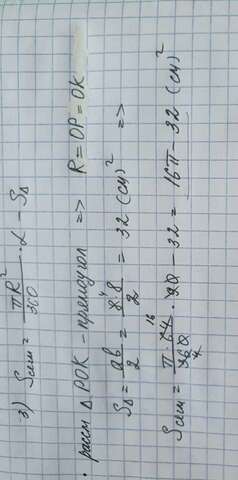 3) Sсегм = πR²/360 · α − S∆
· рассм ∆ POK - прямоугол => R = OP = OK
S∆ = ab/2 = 8 · 8/2 = 32 (см)² =>
Sсегм = π · 64/360 · 90 − 32 = 16π − 32 (см)²